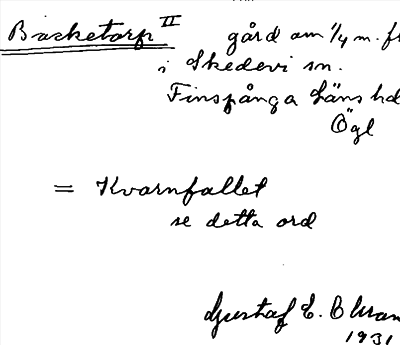 Bäcketorp II gård om 1/4 m. fr
i Skedevi sn.
Finspånga läns hd
Ögl
= Kvarnfallet
se detta ord
Gustaf E.
1931